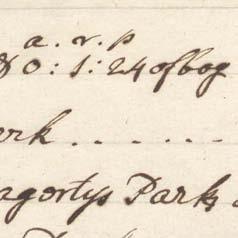 a. r. p
& 0: 1: 24 of bog
ark . . . . . .
agortys Park